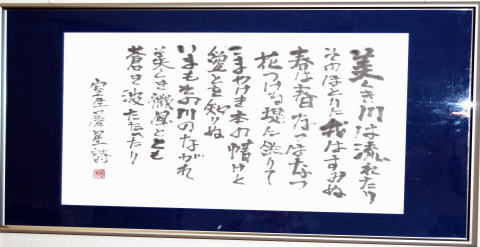 美しき川は流れたり
そのほとりに我はすみぬ
春は春、なつはなつの
花つける堤に坐りて
こまやけき本の情けと
愛とを知りぬ
いまもその川のながれ
美しき微風ととも
蒼き波たたへたり
室生犀星詩